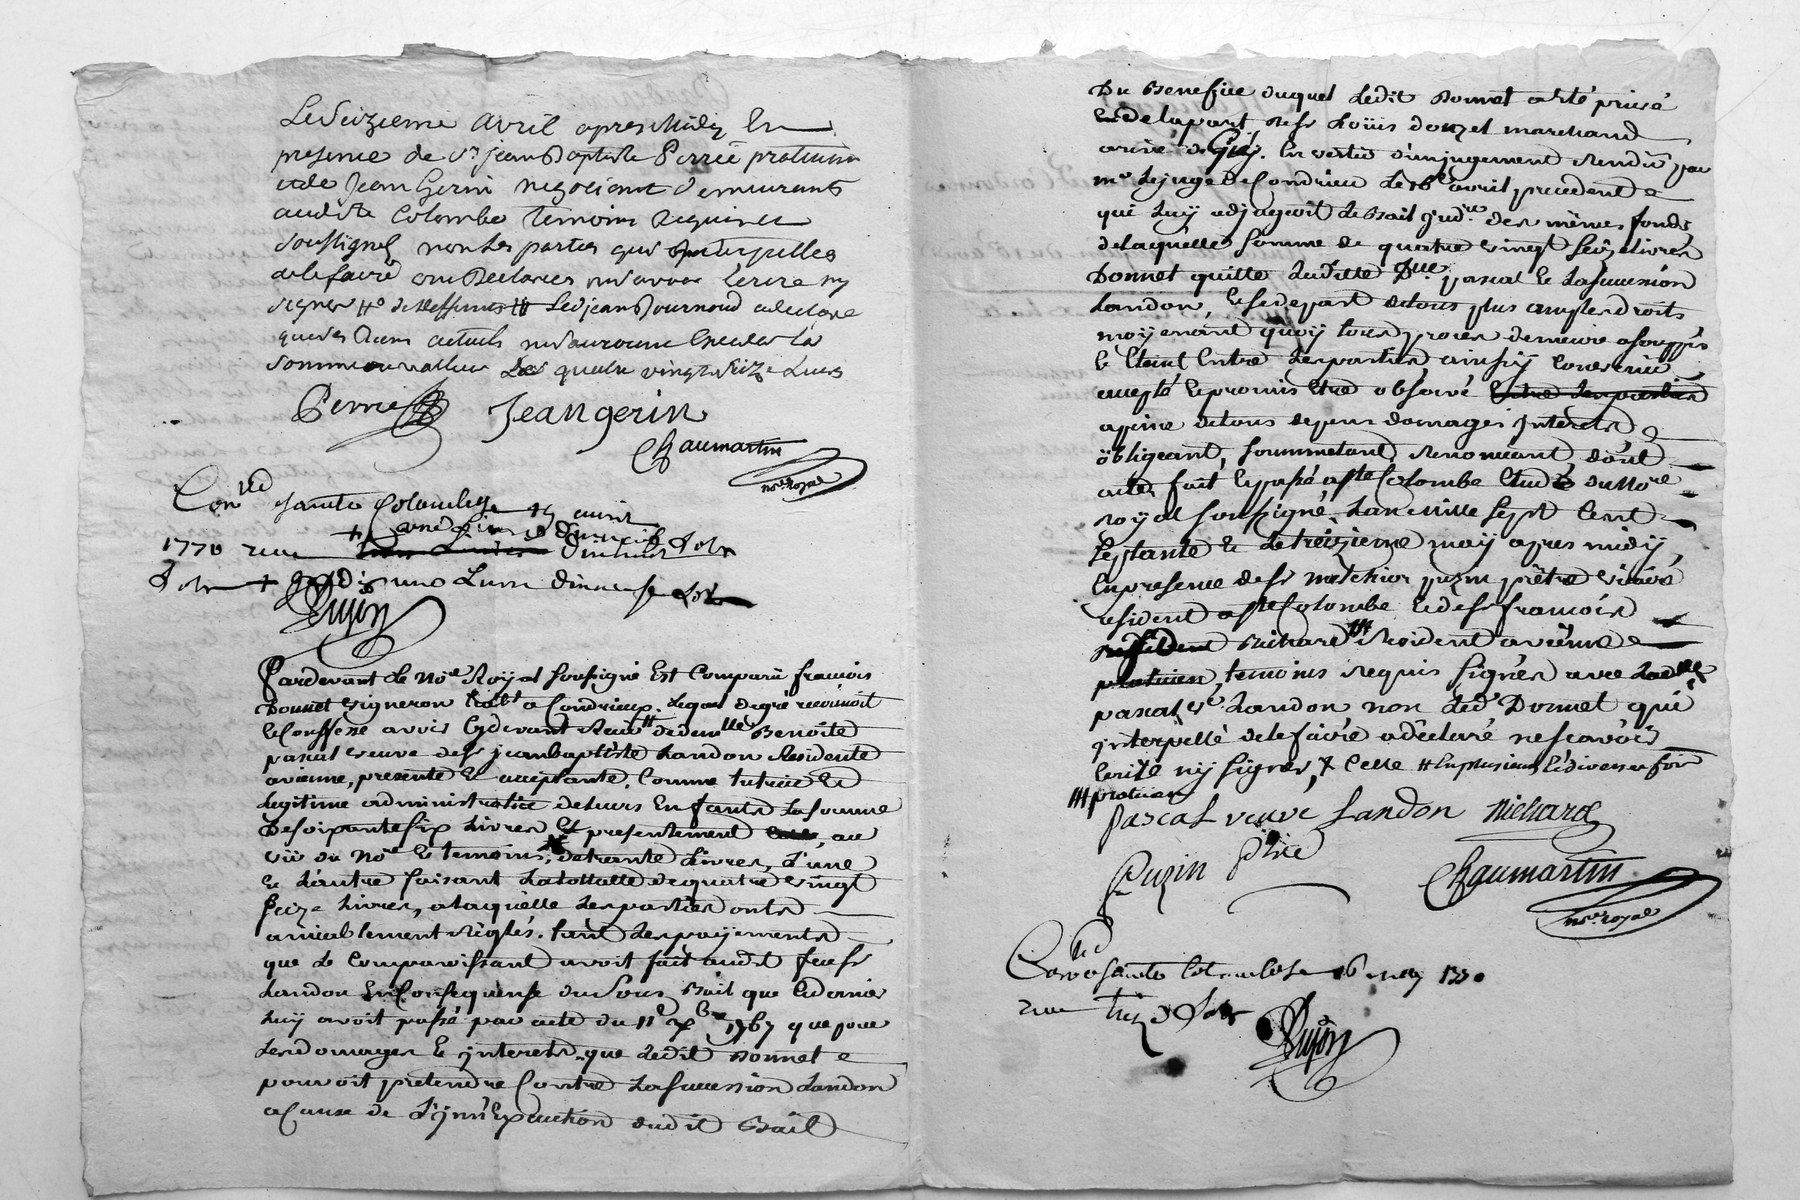 Le seizieme avril apres midy En
presence de Sr jean Baptiste Perrie praticien
et de Jean Gerin negotiant demeurants
audit Ste Colombe temoins requis et
soussignes non les parties qui interpelles
de le faire ont Declares ne scavoir Ecrire ny
signer
que ses
somme quatre vingt seize Livres
Perrie Jean gerin
Chaumartin
nore royal
Con.lle a Sainte Colombe avril
1770 reçu
Dujon
Pardevant Le Nore Royal soussigné Est Comparû francois
Donnet vigneron habt a Condrieux. Lequel degré reconnoit
Et Confesse avoir Cydevant Reçu de demlle Benoite
pascal veuve de sr jean baptiste Landon Residente
a vienne, presente Et acceptante, Comme tutrice Et
Legitime administratice de leurs Enfants La somme
De soixante six Livres Et presentement au
vû du Nore Et temoins, de trante Livres, L'une
Et L'autre faisant La tottalle de quatre vingt
seize Livres, a laquelle Les parties ont
amiablement Reglés. tant Les payements
que Le Comparoissant avoit fait audit feu sr
Landon En Consequense du sous Bail que Ce dernier
Luy avoit passé par acte du 11e xbre 1767 que pour
Les domages Et jnterets que Ledit Donnet
pouvoit pretendre Contre La succession Landon
a Cause de L'jnnExecution dudit Bail
Du Benefice duquel Ledit Donnet a Eté privé
de la part de sr Loüis donzel marchand
En vertu d'un jugement Rendû par
mr Le juge De Condrieu Le 16e avril precedent
qui Luy adjugeoit Le Bail judre des mêmes fonds
de laquelle somme de quatre vingt seize Livres
Donnet quitte Laditte Dlle pascal Et La succession
Landon, Et se depart de tous plus amples droits
moyenant quoy tous proces demeure assoupis
Et Eteint Entre Les parties ainsy Convenu
accepté Et promis Etre observé Entre Les parties
a peine de tous depens domages jnterets
obligeant, soummetant, Renonceant dont
acte, fait Et passé a Ste Colombe Etude du Nore
royal soussigné, L'an mille sept Cent
septante Et Le treizieme may apres midy,
En presence de sr melchior puzin prêtre
resident a Ste Colombe Et de sr francois
Richard /// Resident a vienne
praticien, temoins Requis signés avec Ladlle
pascal ve Landon non Led. Donnet qui
jnterpellé de le faire a déclaré ne scavoir
Ecrire ny signer, # En plusieurs Et diverses fois
/// praticien
pascal veuve Landon Richard
Puzin ptre
Chaumartin
nore royal
a Sainte Colombe 16 may 1770
reçu treize sols
Dujon